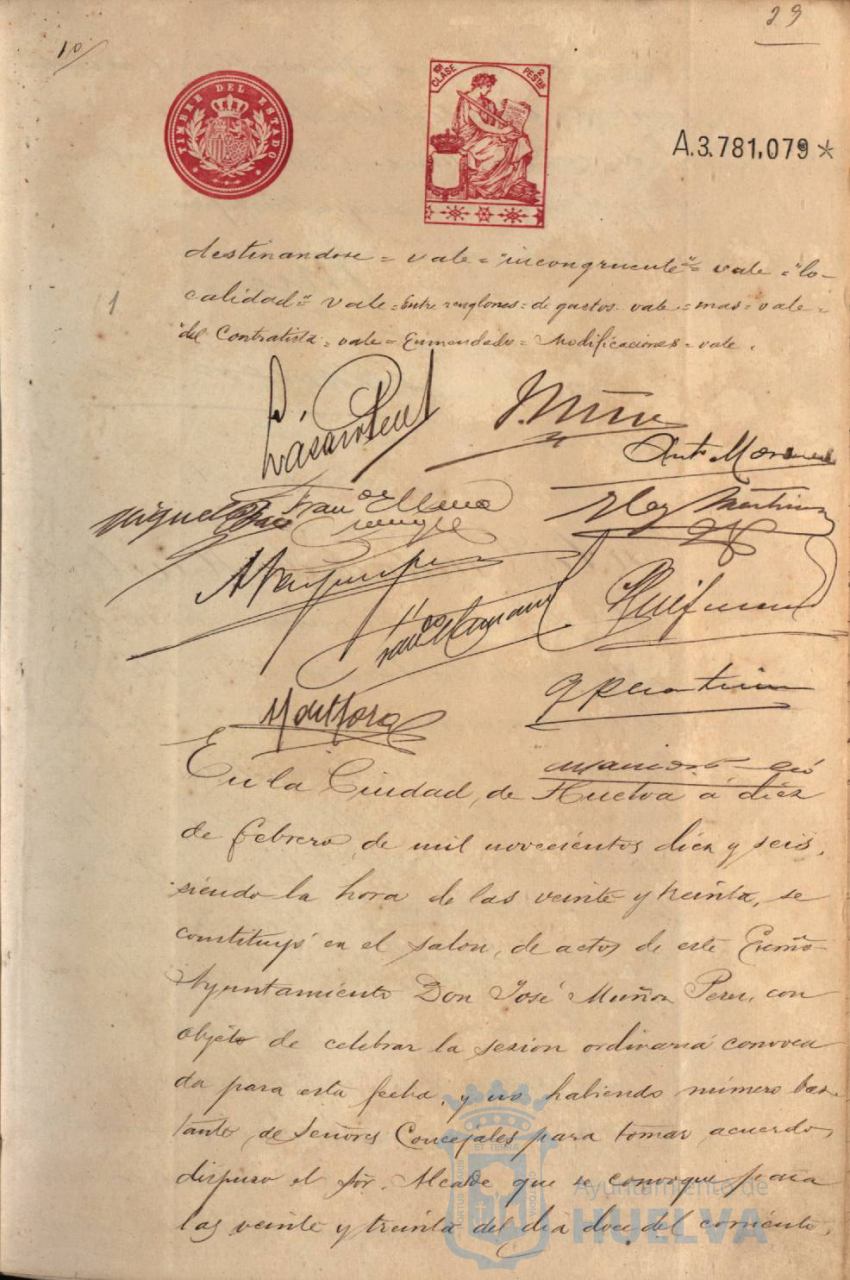 10
29
TIMBRE DEL ESTADO
10ª CLASE 2 PESETAS
A.3.781,079*
destinandose = vale = "incongruente" = vale = "lo-
1
calidad" vale = Entre renglones = de gastos = vale = mas = vale =
"del Contratista = vale = Enmendado = Modificaciones = vale.
Ant. Morano
Miguel
H. de Mora
En la Ciudad, de Huelva á diez
de febrero, de mil novecientos, diez y seis,
siendo la hora de las veinte y treinta, se
constituyó en el salon, de actos de este Excmo
Ayuntamiento Don José Muñoz Perez, con
objeto de celebrar la sesion ordinaria convoca
da para esta fecha, y no habiendo número bas-
tante, de Señores Concejales para tomar acuerdo,
dispuso el Sor. Alcalde que se convoque para
las veinte y treinta del dia doce del corriente,
Ayuntamiento de
HUELVA